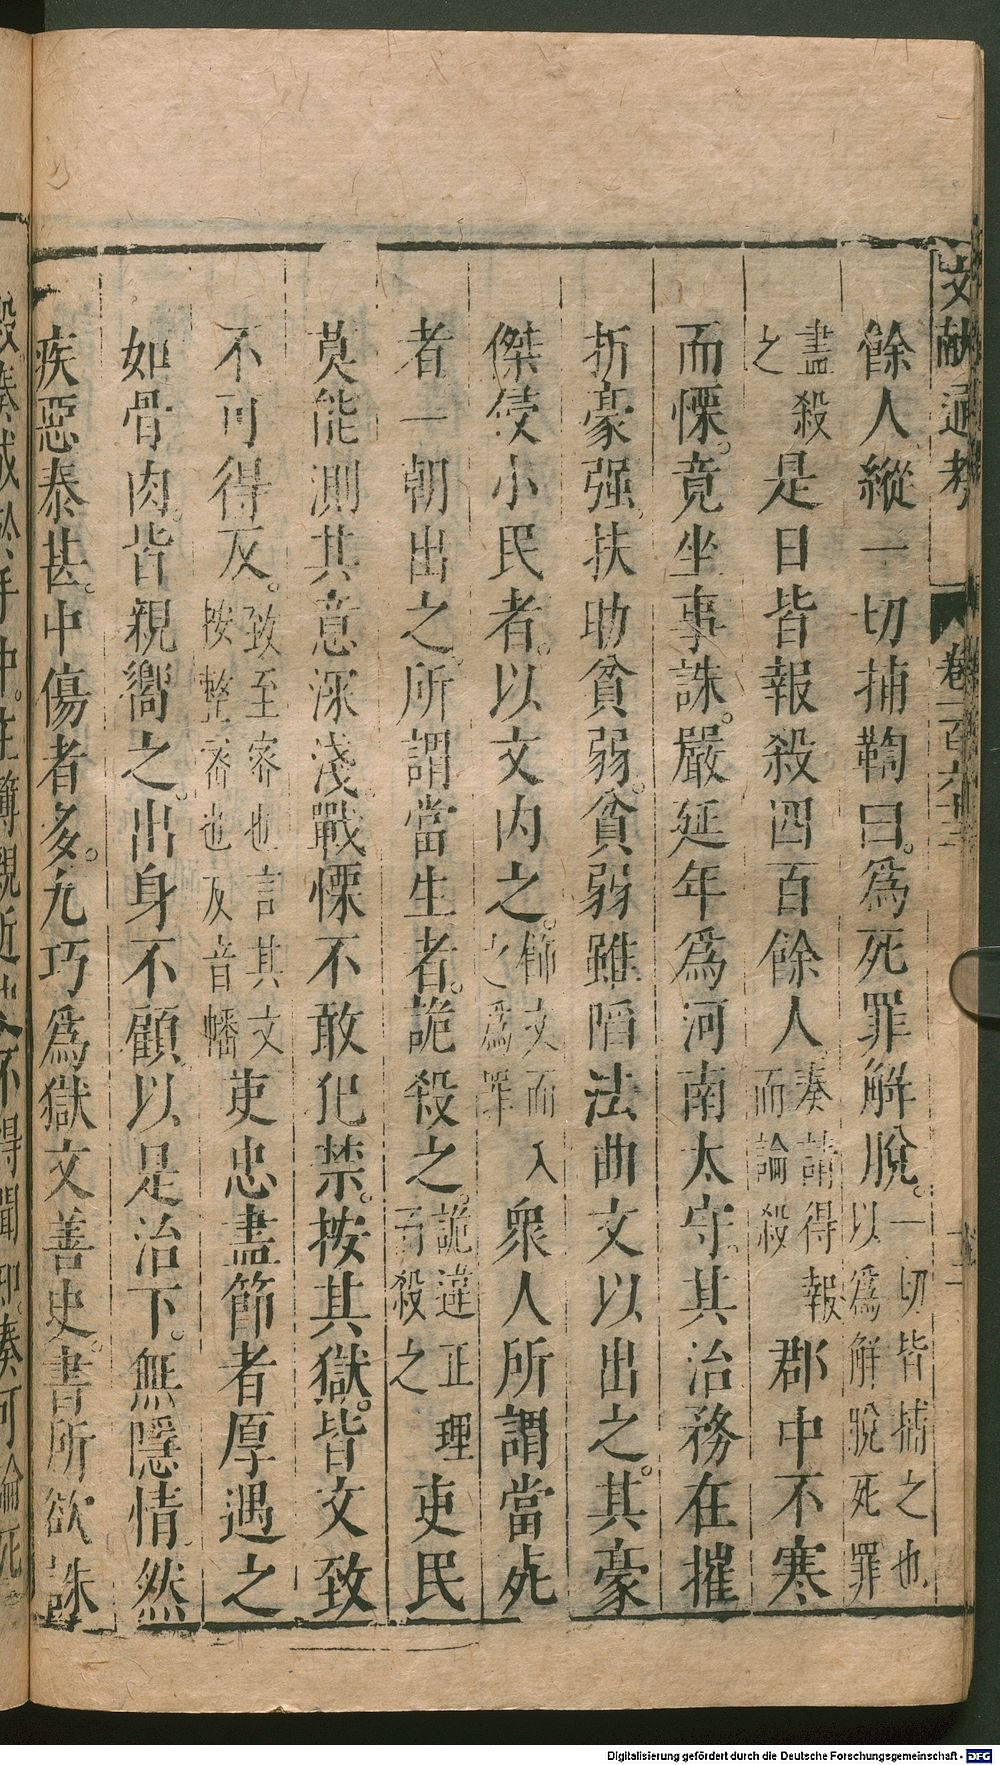 文獻通考 卷一百六十三 十二
餘人縱一切捕鞫曰爲死罪解脫。一切皆捕之也以爲解脫死罪
盡殺之是日皆報殺四百餘人奏請得報而論殺郡中不寒
而慄。竟坐事誅。嚴延年爲河南太守。其治務在摧
折豪强。扶助貧弱。貧弱雖陷法曲文以出之。其豪
傑侵小民者。以文内之。飾文而入之爲罪衆人所謂當死
者一朝出之。所謂當生者。詭殺之。詭違正理而殺之吏民
莫能測其意深淺。戰慄不敢犯禁。按其獄。皆文致
不可得反。致至密也言其文按整密也反音幡吏忠盡節者厚遇之
如骨肉。皆親嚮之。出身不顧。以是治下。無隱情。然
疾惡泰甚。中傷者多。尤巧爲獄文善史。書所欲誅
Digitalisierung gefördert durch die Deutsche Forschungsgemeinschaft - DFG